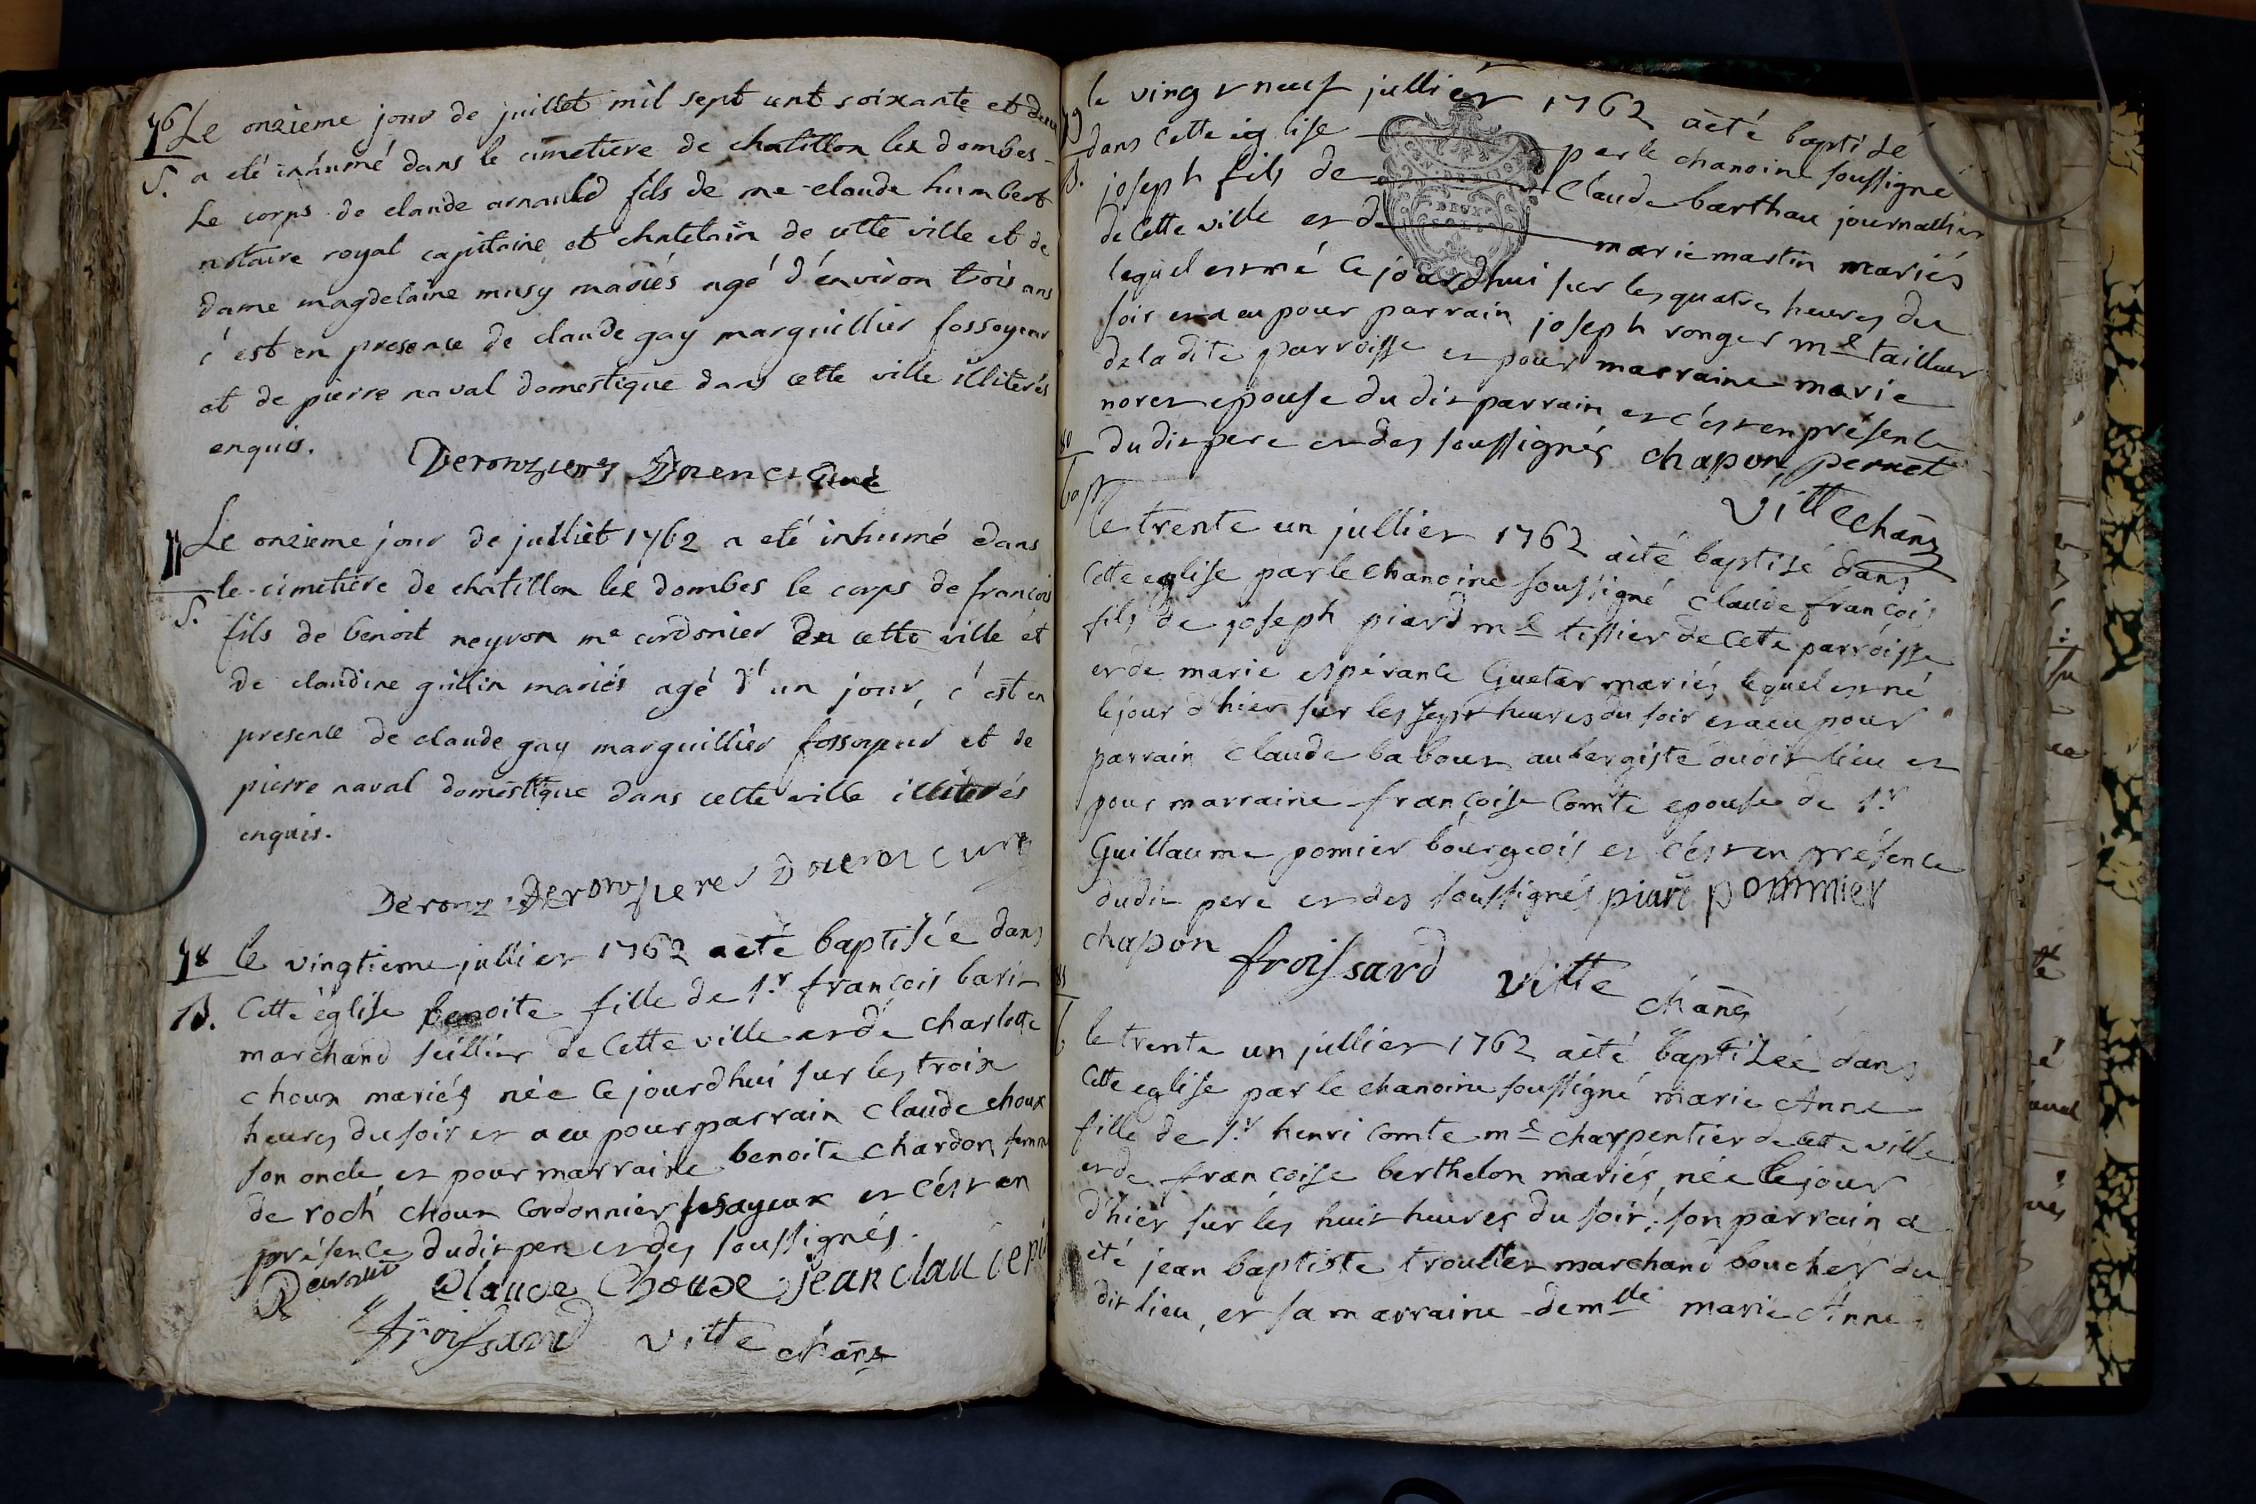 76 Le onzieme jour de juillet mil sept cent soixante et deux
S. a eté inhumé dans le cimetiere de chatillon les dombes
Le corps de claude arnauld fils de me claude humbert
notaire royal capitaine et chatelain de cette ville et de
dame magdelaine musy mariés agé d'environ trois ans
c'est en presence de claude gay marguillier fossoyeur
et de pierre naval domestique dans cette ville illiterés
enquis.
77 Le onzieme jour de julliet 1762 a eté inhumé dans
S. le cimetiere de chatillon les dombes le corps de françois
fils de benoit neyron me cordonier de cette ville et
de claudine guillin mariés agé d'un jour, c'est en
presence de claude gay marguillier fossoyeur et de
pierre naval domestique dans cette ville illiterés
enquis.
78 le vingtieme jullier 1762 aèté baptisée dans
B. Cette église benoite fille de Sr. françois
marchand sellier de Cette ville et de Charlotte
choux mariés née Ce jourdhui sur les troix
heures du soir et a eu pour parrain Claude choux
son oncle et pour marraine benoite chardon femme
de roch choux Cordonnier ses ayeux et c'ést en
présence dudit pere et des soussignés.
Claude Choux jean claude
froissard vitte chane
79 le vingt neuf jullier 1762 aèté baptisé
B. dans cette église par le chanoine soussigné
joseph fils de Claude barthau journallier
de Cette ville et de marie martin mariés
lequel est né Ce jourdhui sur les quatre heures du
soir et a eu pour parrain joseph ronger me tailleur
de la dite parroisse et pour marraine marie
noret epouse du dit parrain et c'ést en présence
du dit pere et des soussignés chapon pernet
vitte chane
80 bapt
le trente un jullier 1762 aèté baptisé dans
Cette eglise par le chanoine soussigné Claude françois
fils de joseph piard me tissier de Cete parroisse
et de marie espérance Guetat mariés lequel est né
le jour d'hier sur les sept heures du soir et a eu pour
parrain Claude babouet aubergiste dudit lieu et
pour marraine françoise Comte epouse de Sr.
Guillaume pomier bourgeois et c'ést en présence
dudit pere et des soussignés piard pommier
chapon froissard vitte
chane
81
b le trente un jullier 1762 aèté baptizée dans
Cette eglise par le chanoine soussigné marie Anne
fille de Sr. henri Comte me charpentier de Cette ville
et de françoise berthelon mariés, née le jour
d'hier sur les huit heures du soir; son parrain a
èté jean baptiste troullet marchand boucher du
dit lieu, et sa marraine demlle marie Anne